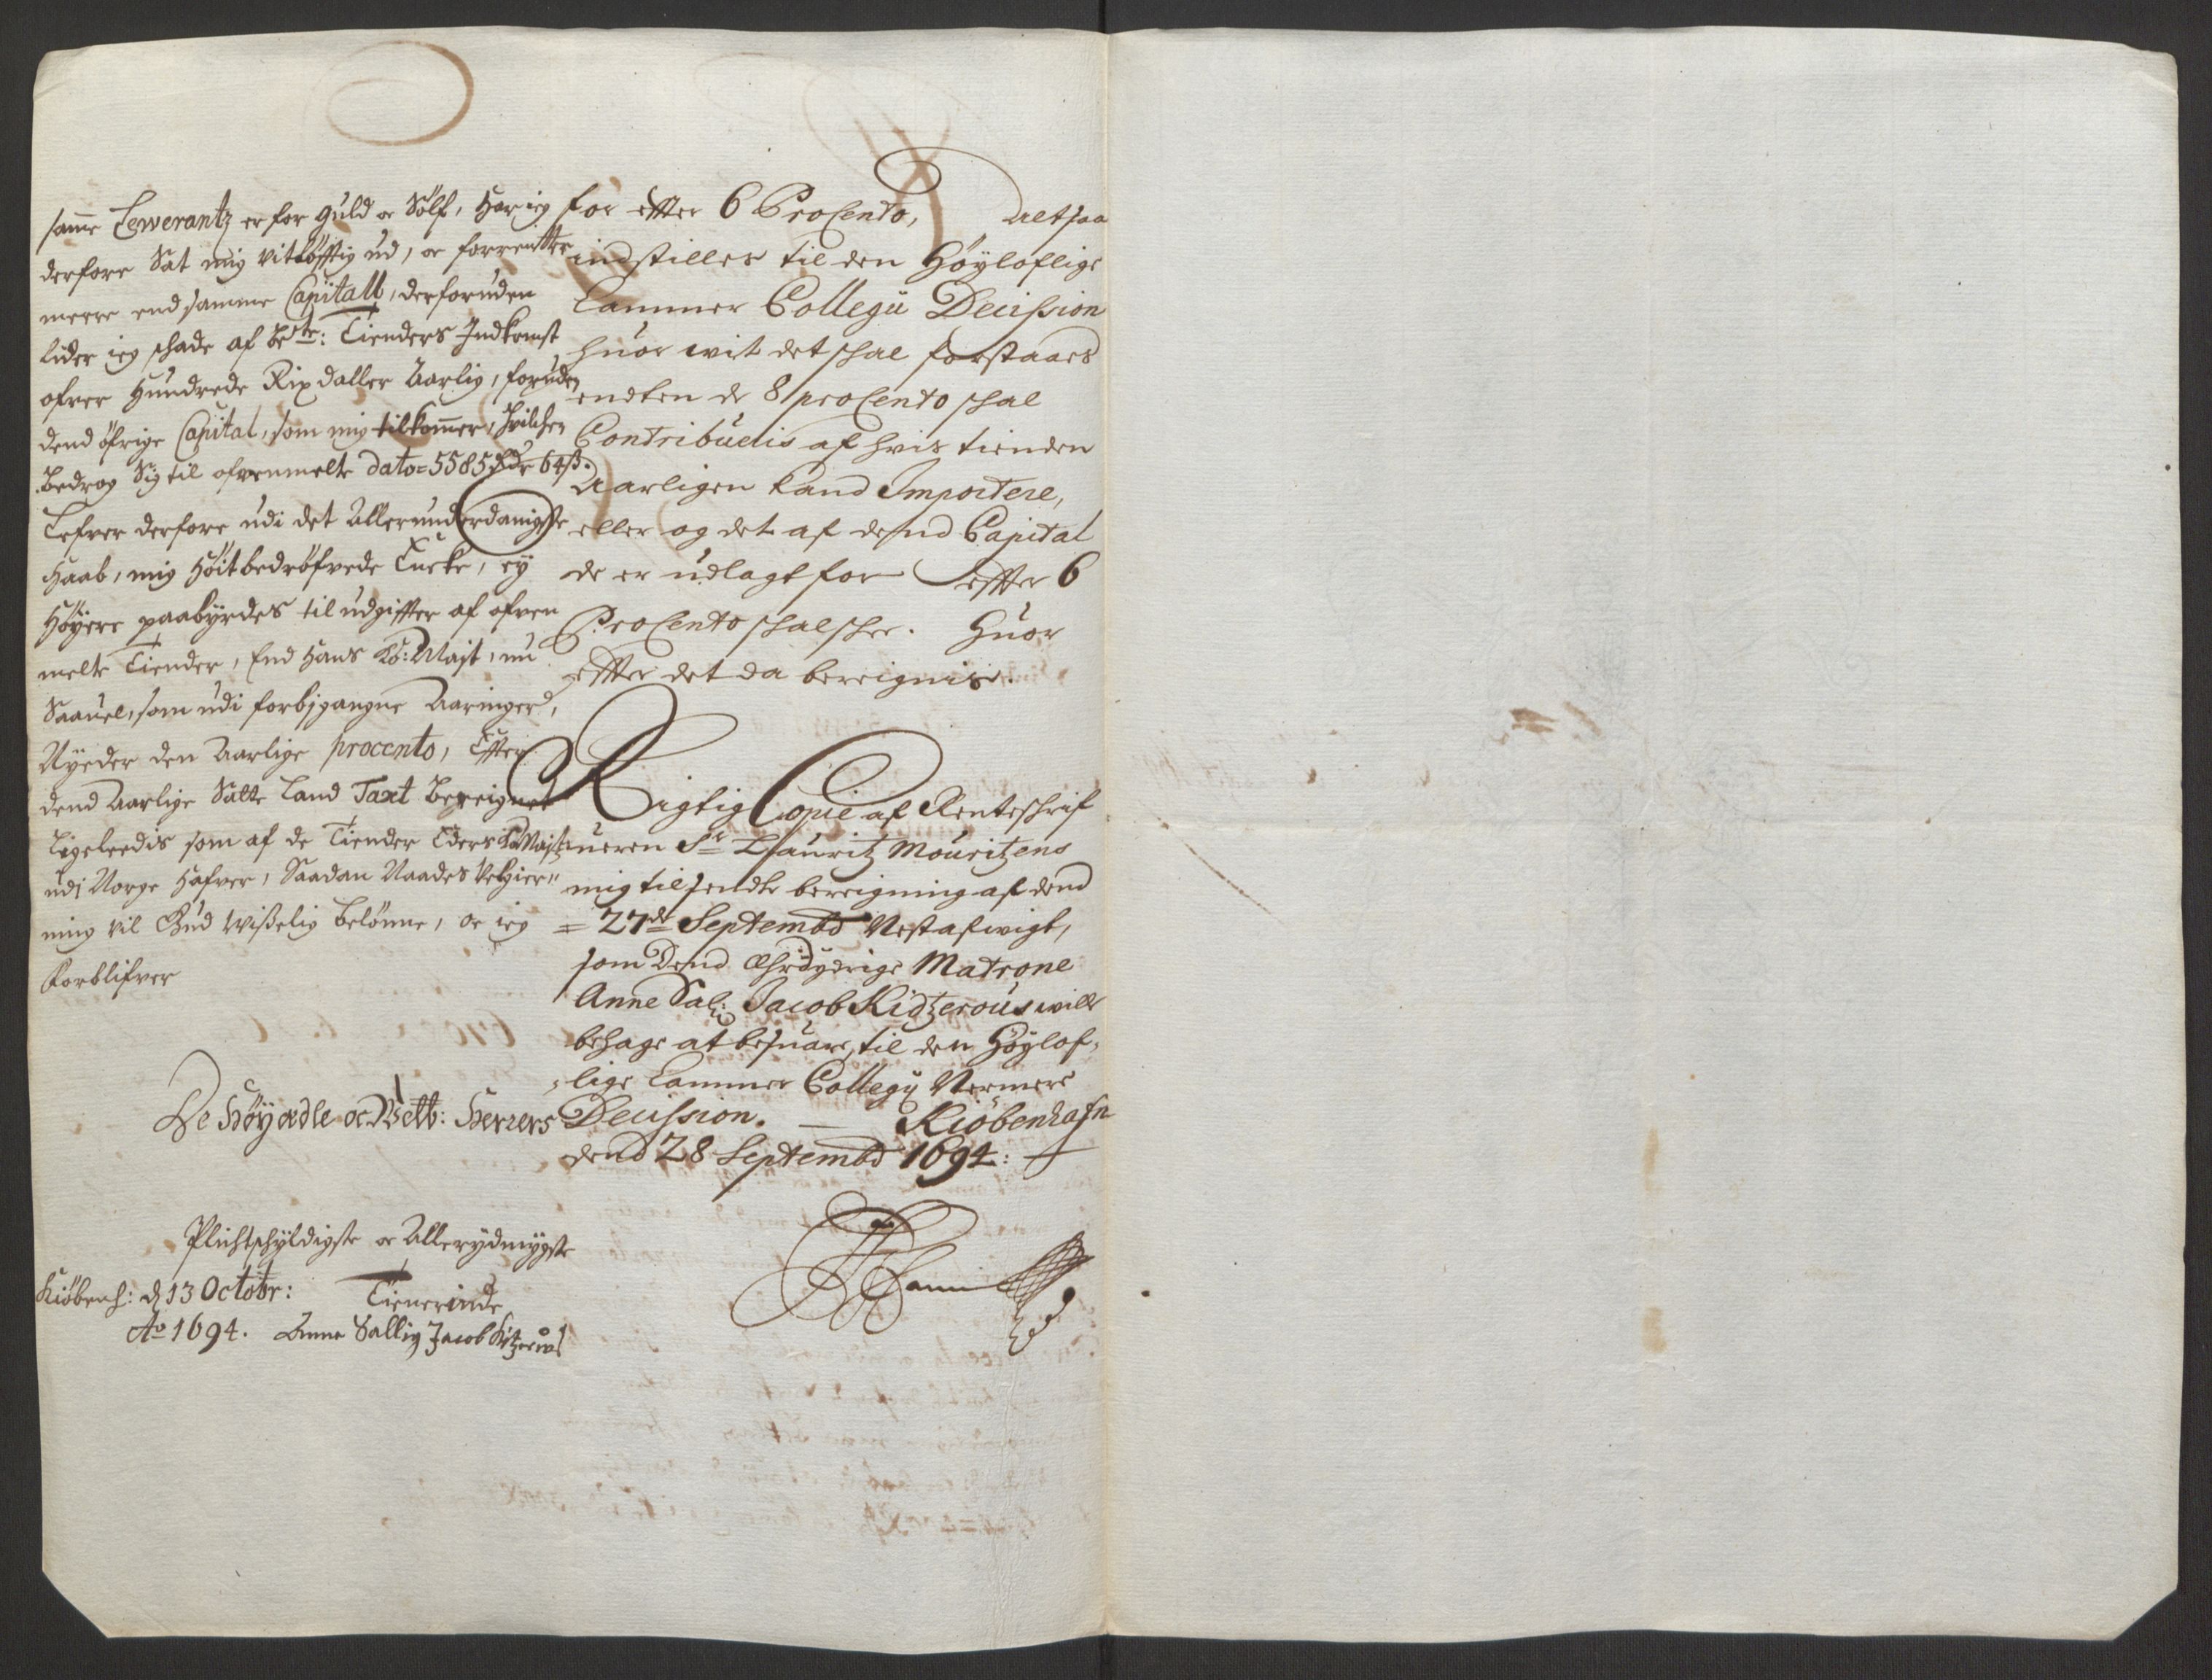 samme Lewerantz er for guld oc Sölf, har ieg
derfore Sat mig vitlöfftig ud, oc forrentter
meere end samme Capitall, derforuden
lider ieg schade af bete: Tienders Indkomst
ofver hundrede Rixdaller Aarlig, foruden
dend öfrige Capital, som mig tilkommer, hvilchen
bedrog Sig til ofvenmelte dato = 5585 Rdr 64 ß.
Lefver derfore udi det Allerunderdanigste
haab, mig höitbedröfvede Encke, ey
höyere paabyrdes til udgiffter af ofven
melte Tiender, End hans Ko: Mayt, nu
Saauel, som udi forbigangne Aaringer,
Nyder den Aarlige procento, Effter
dend Aarlige Satte Land Taxt Bereignet
Ligeleedis som af de Tiender Eders Ko Mayt
udi Norge hafver, Saadan Naades
ning vil Gud wißelig belönne, oc ieg
forblifver
De Höyædle oc Velb: Herrers
Plichtschyldigste oc Allerydmygste
Kiöbenh: d 13 Octobr: Tienerinde
Ao 1694. Anne Sallig Jacob Kitzerows
for effter 6 ProCento, Altsaa
indstilles til den Höyloflige
Cammer Collegii Decission
huor wit det schal forstaaes
endten de 8 proCento schal
Contribueris af hvis tienden
Aarligen kand Importere,
eller og det af dend Capital
de er udlagt for effter 6
ProCento schal schee. Huor
effter det da bereignis.
Rigtig Copie af Renteschrif
ueren Sr Lauritz Mouritzens
mig tilsendte bereigning af dend
= 27de Septembr Nestafwigt,
som Dend Ehrdydrige Matrone
Anne Sal: Jacob Kidtzerous wille
behage at besuare, til den Höylof,
lige Cammer Collegii Nermere
Decission. Kiöbenhafn
dend 28 Septembr 1694: